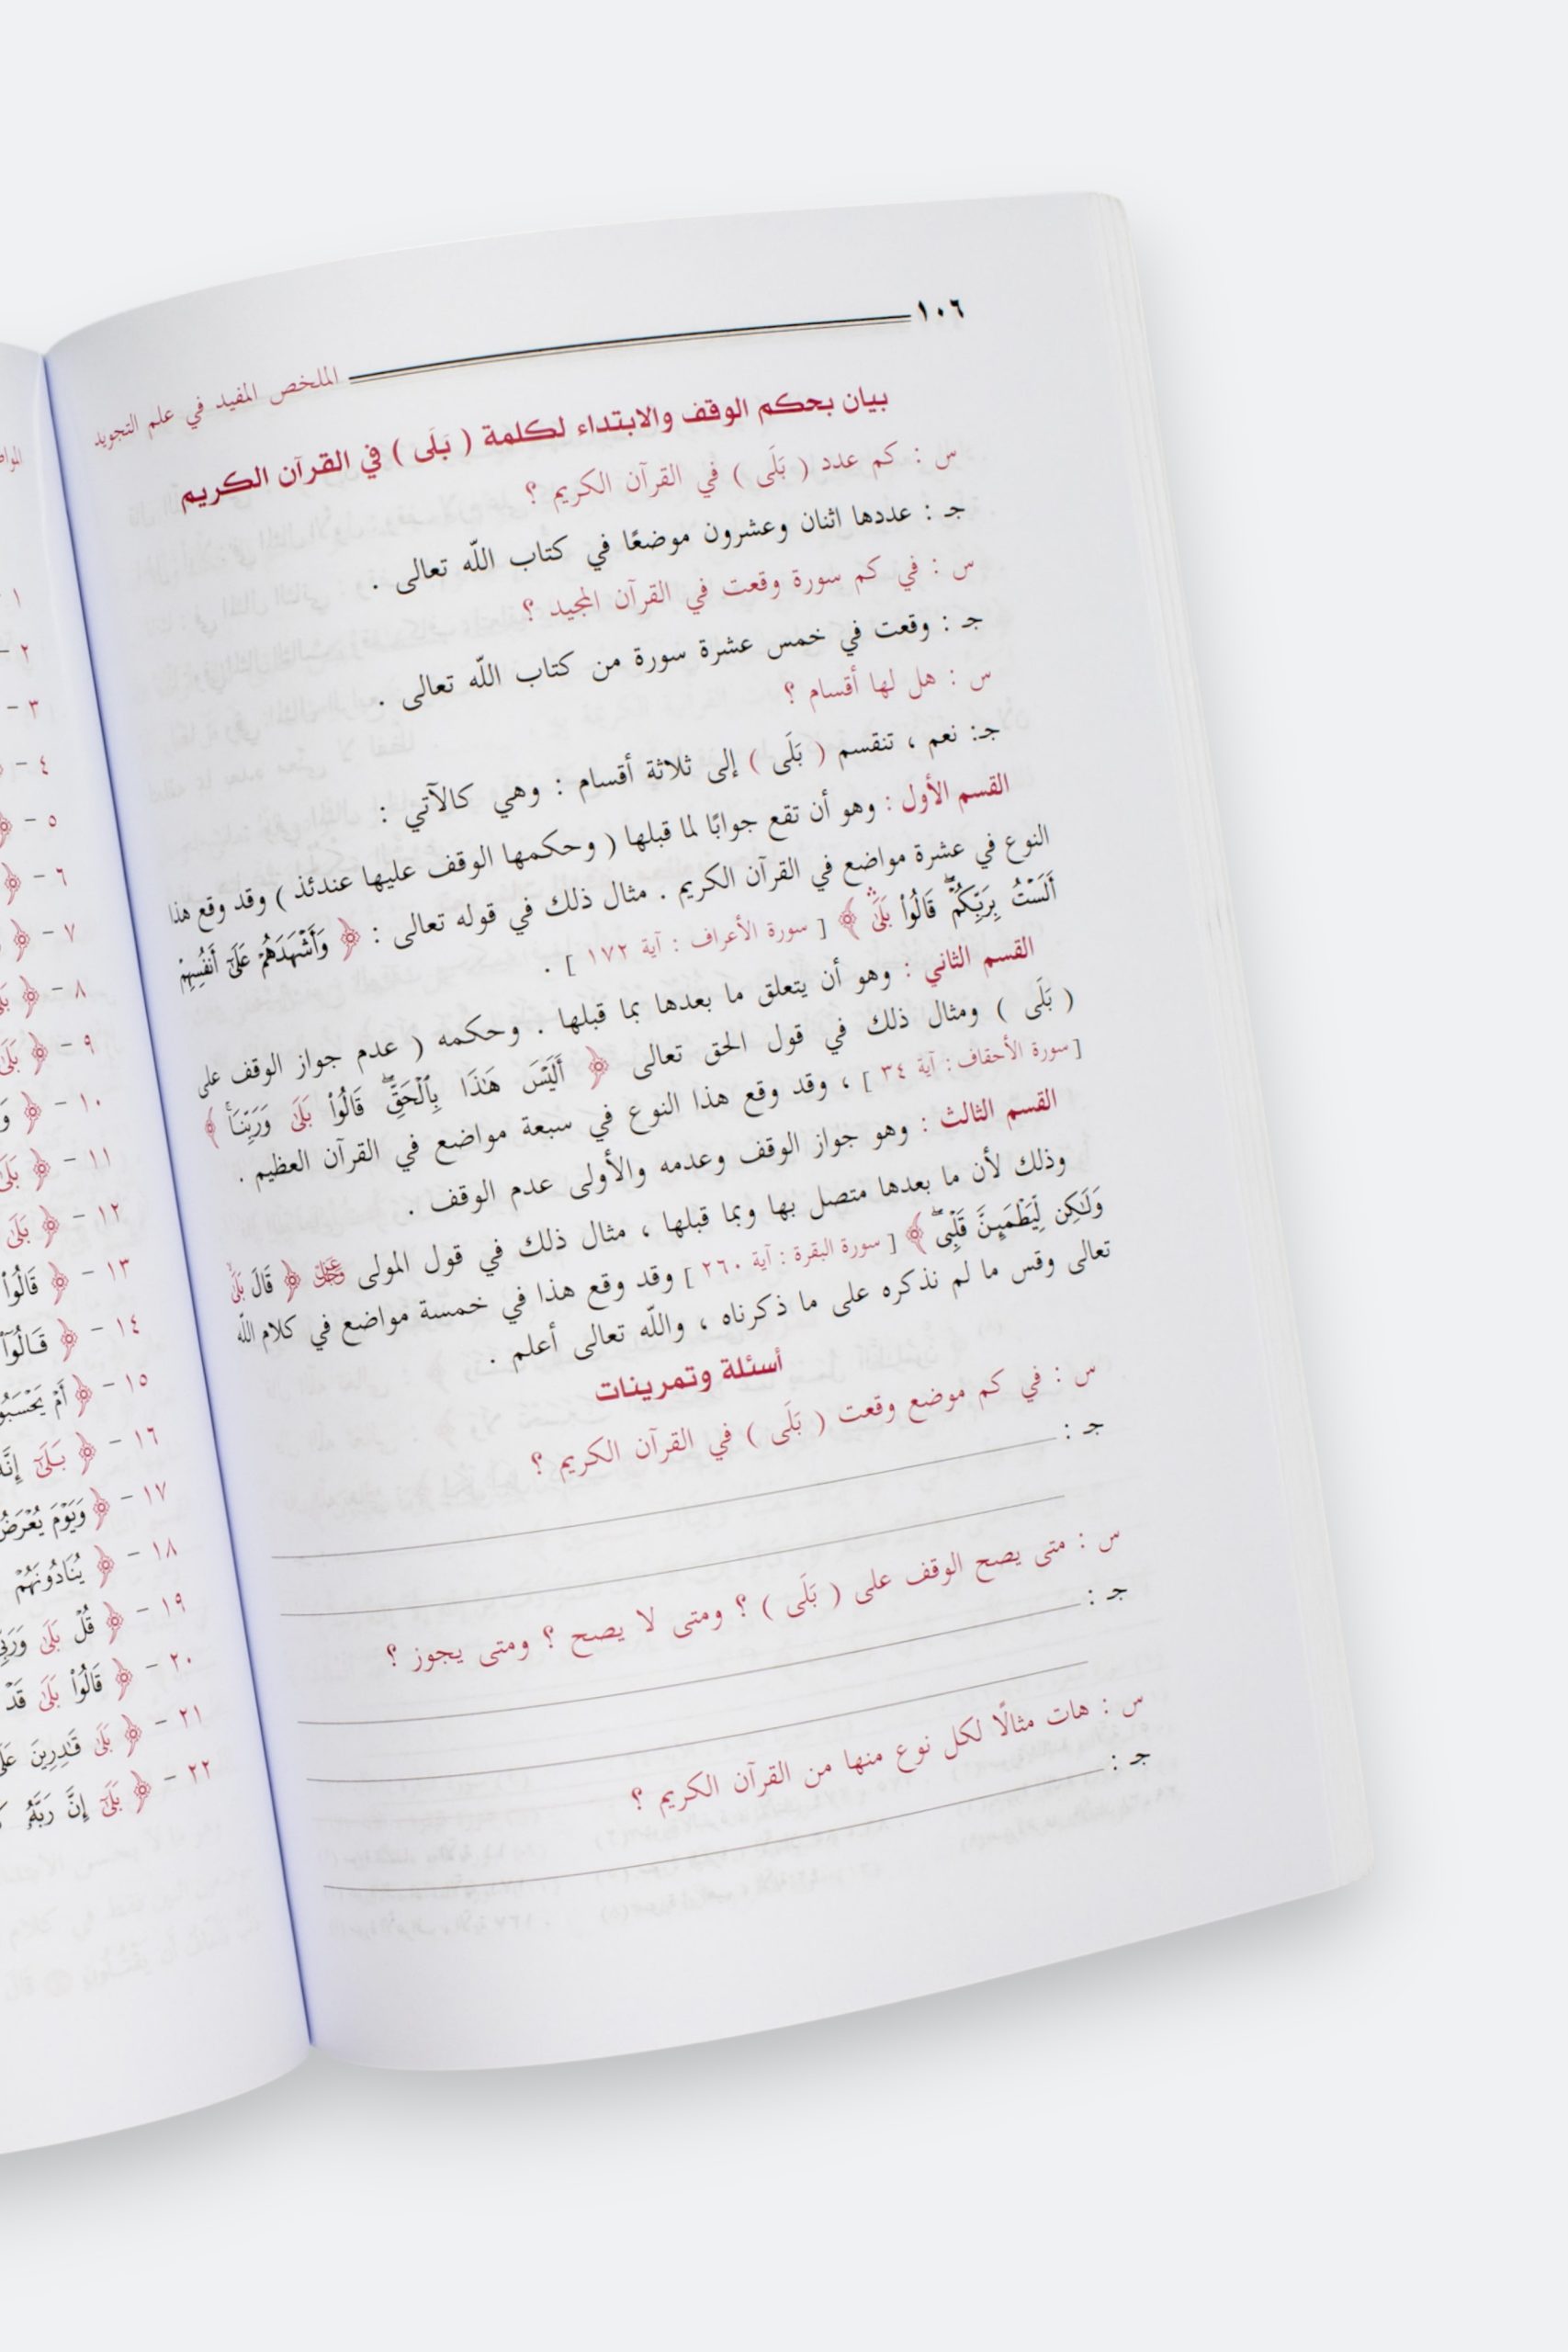 ١٠٦ الملخص المفيد في علم التجويد
بيان بحكم الوقف والابتداء لكلمة ( بَلَى ) في القرآن الكريم
س : كم عدد ( بَلَى ) في القرآن الكريم ؟
جـ : عددها اثنان وعشرون موضعًا في كتاب اللّه تعالى .
س : في كم سورة وقعت في القرآن المجيد ؟
جـ : وقعت في خمس عشرة سورة من كتاب اللّه تعالى .
س : هل لها أقسام ؟
جـ: نعم ، تنقسم ( بَلَى ) إلى ثلاثة أقسام : وهي كالآتي :
القسم الأول : وهو أن تقع جوابًا لما قبلها ( وحكمها الوقف عليها عندئذ ) وقد وقع هذا
النوع في عشرة مواضع في القرآن الكريم . مثال ذلك في قوله تعالى : ﴿ وَأَشْهَدَهُمْ عَلَىٰٓ أَنفُسِهِمْ
أَلَسْتُ بِرَبِّكُمْ ۖ قَالُوا۟ بَلَىٰ ۛ ﴾ [ سورة الأعراف : آية ١٧٢ ] .
القسم الثاني : وهو أن يتعلق ما بعدها بما قبلها . وحكمه ( عدم جواز الوقف على
( بَلَى ) ومثال ذلك في قول الحق تعالى ﴿ أَلَيْسَ هَٰذَا بِٱلْحَقِّ ۖ قَالُوا۟ بَلَىٰ وَرَبِّنَا ۚ ﴾
[ سورة الأحقاف : آية ٣٤ ] ، وقد وقع هذا النوع في سبعة مواضع في القرآن العظيم .
القسم الثالث : وهو جواز الوقف وعدمه والأولى عدم الوقف .
وذلك لأن ما بعدها متصل بها وبما قبلها ، مثال ذلك في قول المولى ﷿ ﴿ قَالَ بَلَىٰ
وَلَٰكِن لِّيَطْمَئِنَّ قَلْبِى ۖ ﴾ [ سورة البقرة : آية ٢٦٠ ] وقد وقع هذا في خمسة مواضع في كلام اللّه
تعالى وقس ما لم نذكره على ما ذكرناه ، واللّه تعالى أعلم .
أسئلة وتمرينات
س : في كم موضع وقعت ( بَلَى ) في القرآن الكريم ؟
جـ :
س : متى يصح الوقف على ( بَلَى ) ؟ ومتى لا يصح ؟ ومتى يجوز ؟
جـ :
س : هات مثالًا لكل نوع منها من القرآن الكريم ؟
جـ :
١ -
٢ -
٣ -
٤ -
٥ - ﴿
٦ - ﴿
٧ - ﴿
٨ - ﴿
٩ - ﴿ بَلَىٰ
١٠ - ﴿
١١ - ﴿ بَلَىٰ
١٢ - ﴿ بَلَىٰ
١٣ - ﴿ قَالُوا۟
١٤ - ﴿ قَالُوٓا۟
١٥ - ﴿ أَمْ
١٦ - ﴿ بَلَىٰٓ
١٧ - ﴿ وَيَوْمَ
١٨ - ﴿ يُنَادُونَهُمْ
١٩ - ﴿ قُلْ بَلَىٰ
٢٠ - ﴿ قَالُوا۟ بَلَىٰ قَدْ
٢١ - ﴿ بَلَىٰ قَٰدِرِينَ
٢٢ - ﴿ بَلَىٰٓ إِنَّ رَبَّهُۥ